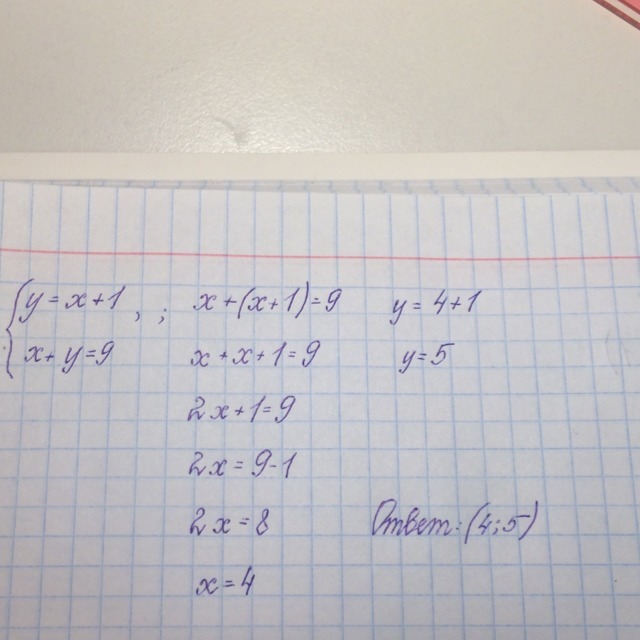 y = x + 1
x + y = 9
, ;
x + (x + 1) = 9
x + x + 1 = 9
2x + 1 = 9
2x = 9 - 1
2x = 8
x = 4
y = 4 + 1
y = 5
Ответ: (4; 5)